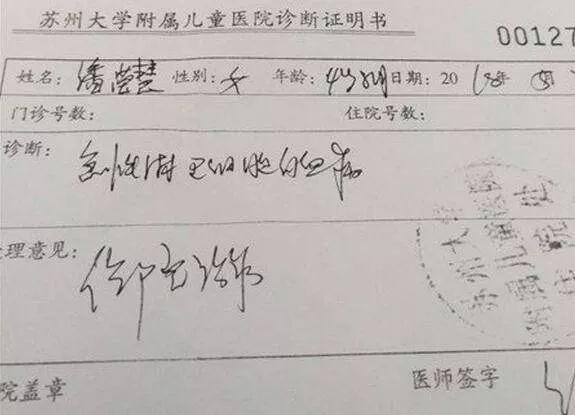 苏州大学附属儿童医院诊断证明书
00127
姓名：潘莹慧 性别：女 年龄：4岁 日期：2018年 月
门诊号数： 住院号数：
诊断： 急性淋巴细胞白血病
理意见： 住院治疗
苏州大学
院盖章 医师签字